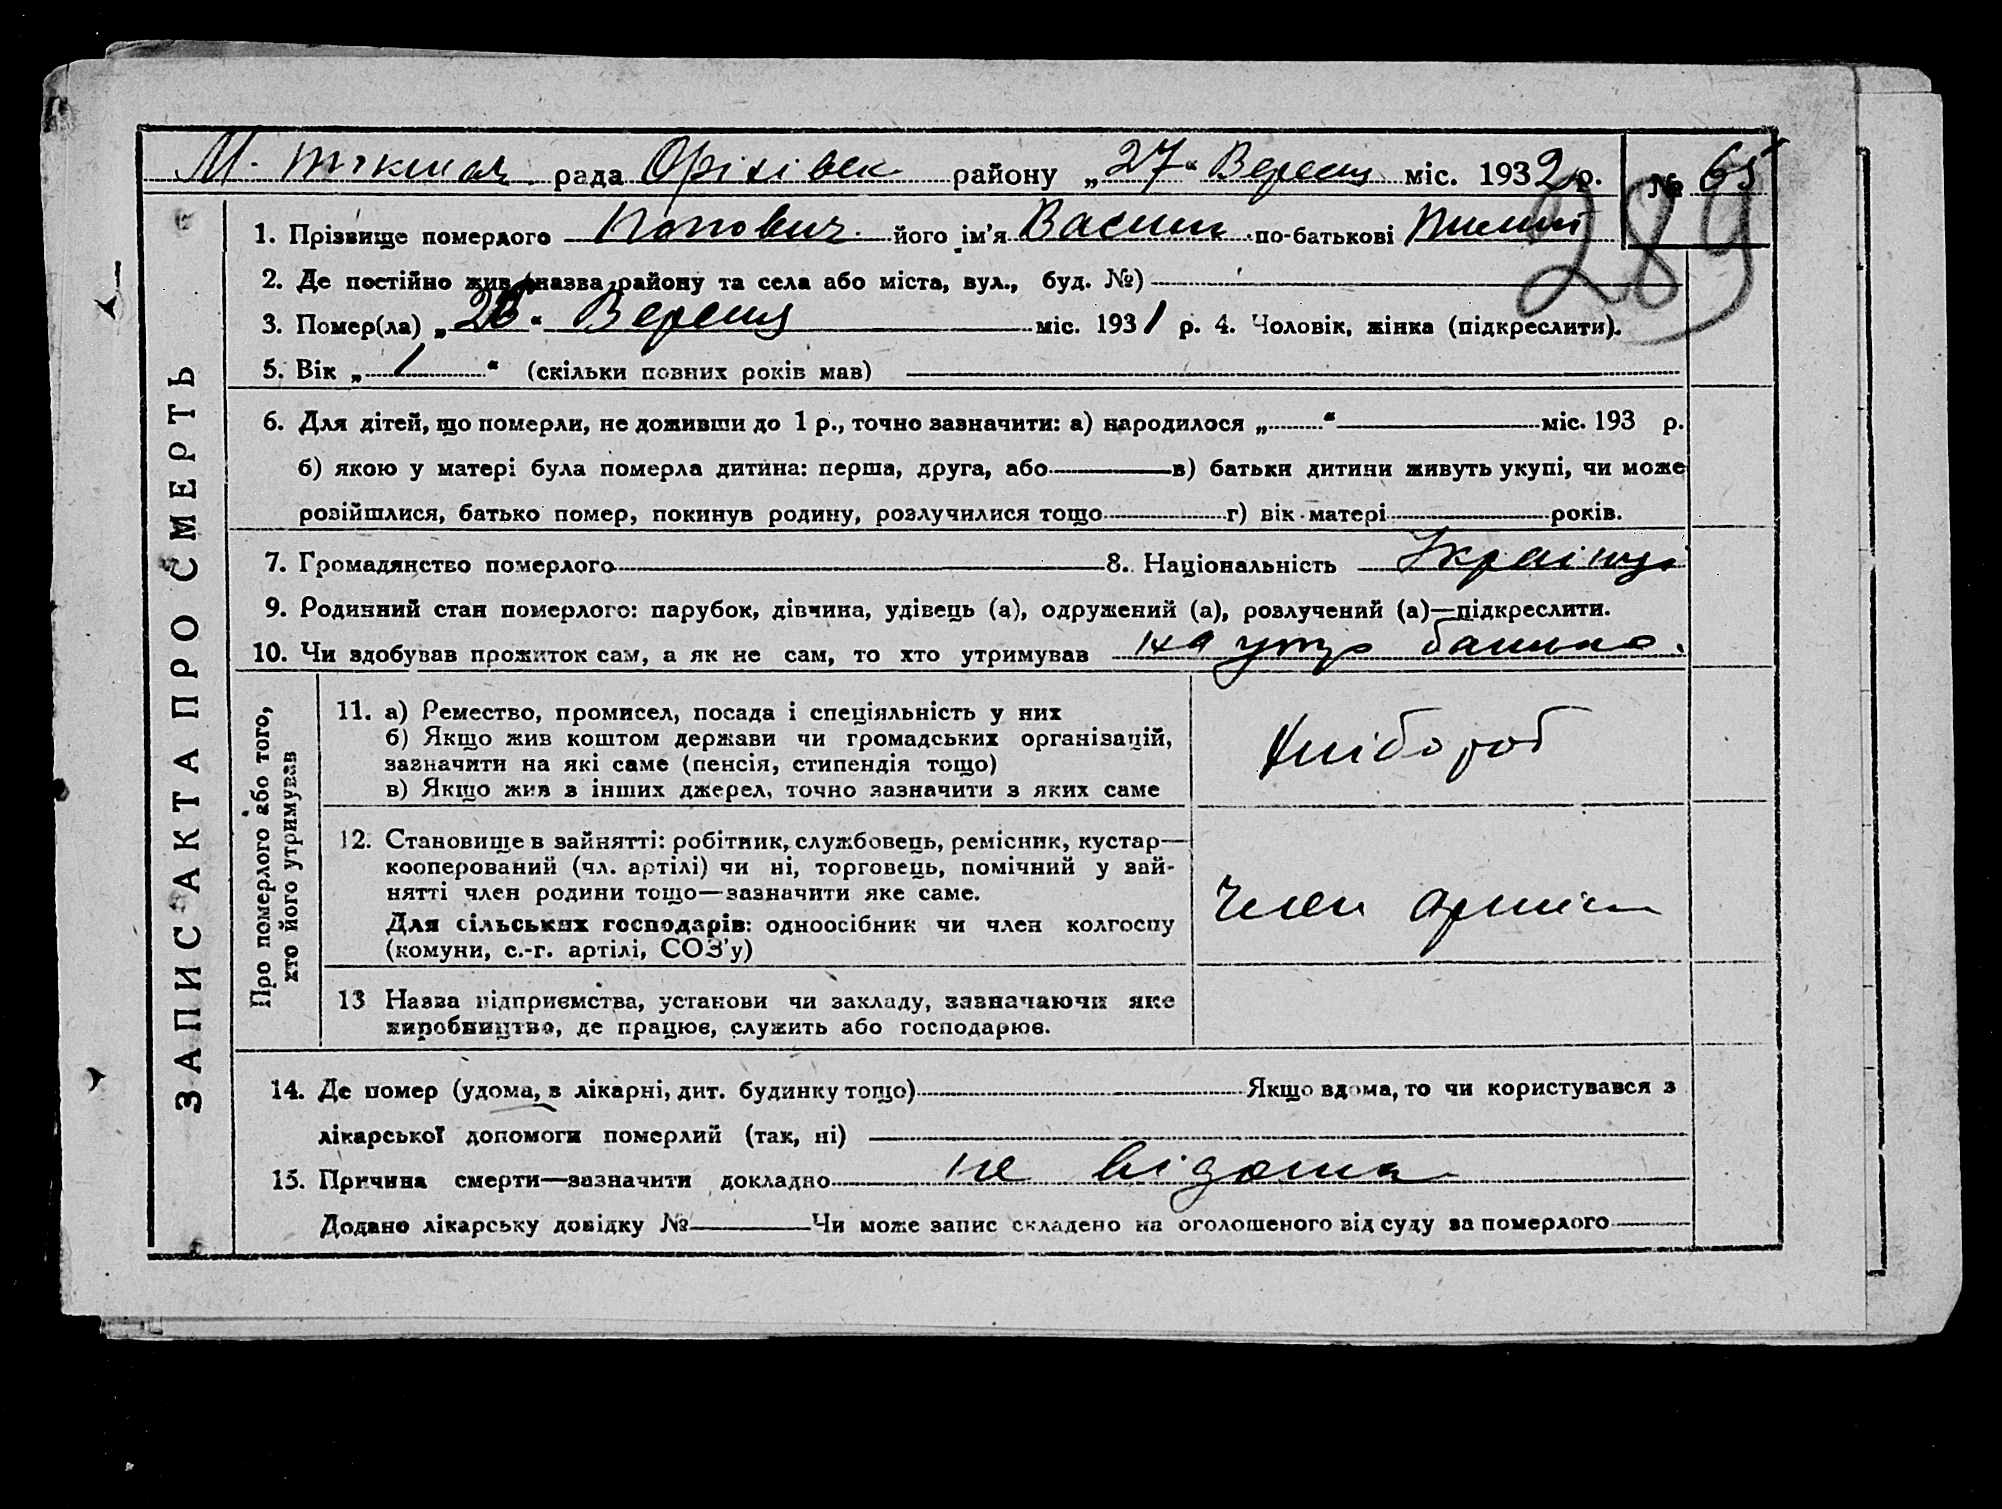 М. Токмач. рада Оріхівск району „27“ Вересня міс. 1932 р. № 65
289
1. Прізвище померлого Попович його ім’я Василь по-батькові
2. Де постійно жив (назва району та села або міста, вул., буд. №)
3. Помер(ла) „26“ Вересня міс. 1931 р. 4. Чоловік, жінка (підкреслити).
5. Вік „1“ (скільки повних років мав)
6. Для дітей, що померли, не доживши до 1 р., точно зазначити: а) народилося „ “ міс. 193 р.
б) якою у матері була померла дитина: перша, друга, або в) батьки дитини живуть укупі, чи може
розійшлися, батько помер, покинув родину, розлучилися тощо г) вік матері років.
7. Громадянство померлого 8. Національність Українці
9. Родинний стан померлого: парубок, дівчина, удівець (а), одружений (а), розлучений (а)—підкреслити.
10. Чи здобував прожиток сам, а як не сам, то хто утримував на утр батька.
ЗАПИС АКТА ПРО СМЕРТЬ
Про померлого або того,
хто його утримував
11. а) Ремество, промисел, посада і спеціяльність у них
б) Якщо жив коштом держави чи громадських організацій,
зазначити на які саме (пенсія, стипендія тощо)
в) Якщо жив з інших джерел, точно зазначити з яких саме
Хлібороб
12. Становище в зайнятті: робітник, службовець, ремісник, кустар—
кооперований (чл. артілі) чи ні, торговець, помічний у зай-
нятті член родини тощо—зазначити яке саме.
Для сільських господарів: одноосібник чи член колгоспу
(комуни, с.-г. артілі, СОЗ’у)
Член артіл
13 Назва підприємства, установи чи закладу, зазначаючи яке
виробництво, де працює, служить або господарює.
14. Де помер (удома, в лікарні, дит. будинку тощо) Якщо вдома, то чи користувався з
лікарської допомоги померлий (так, ні)
15. Причина смерти—зазначити докладно не відома
Додано лікарську довідку № Чи може запис складено на оголошеного від суду за померлого